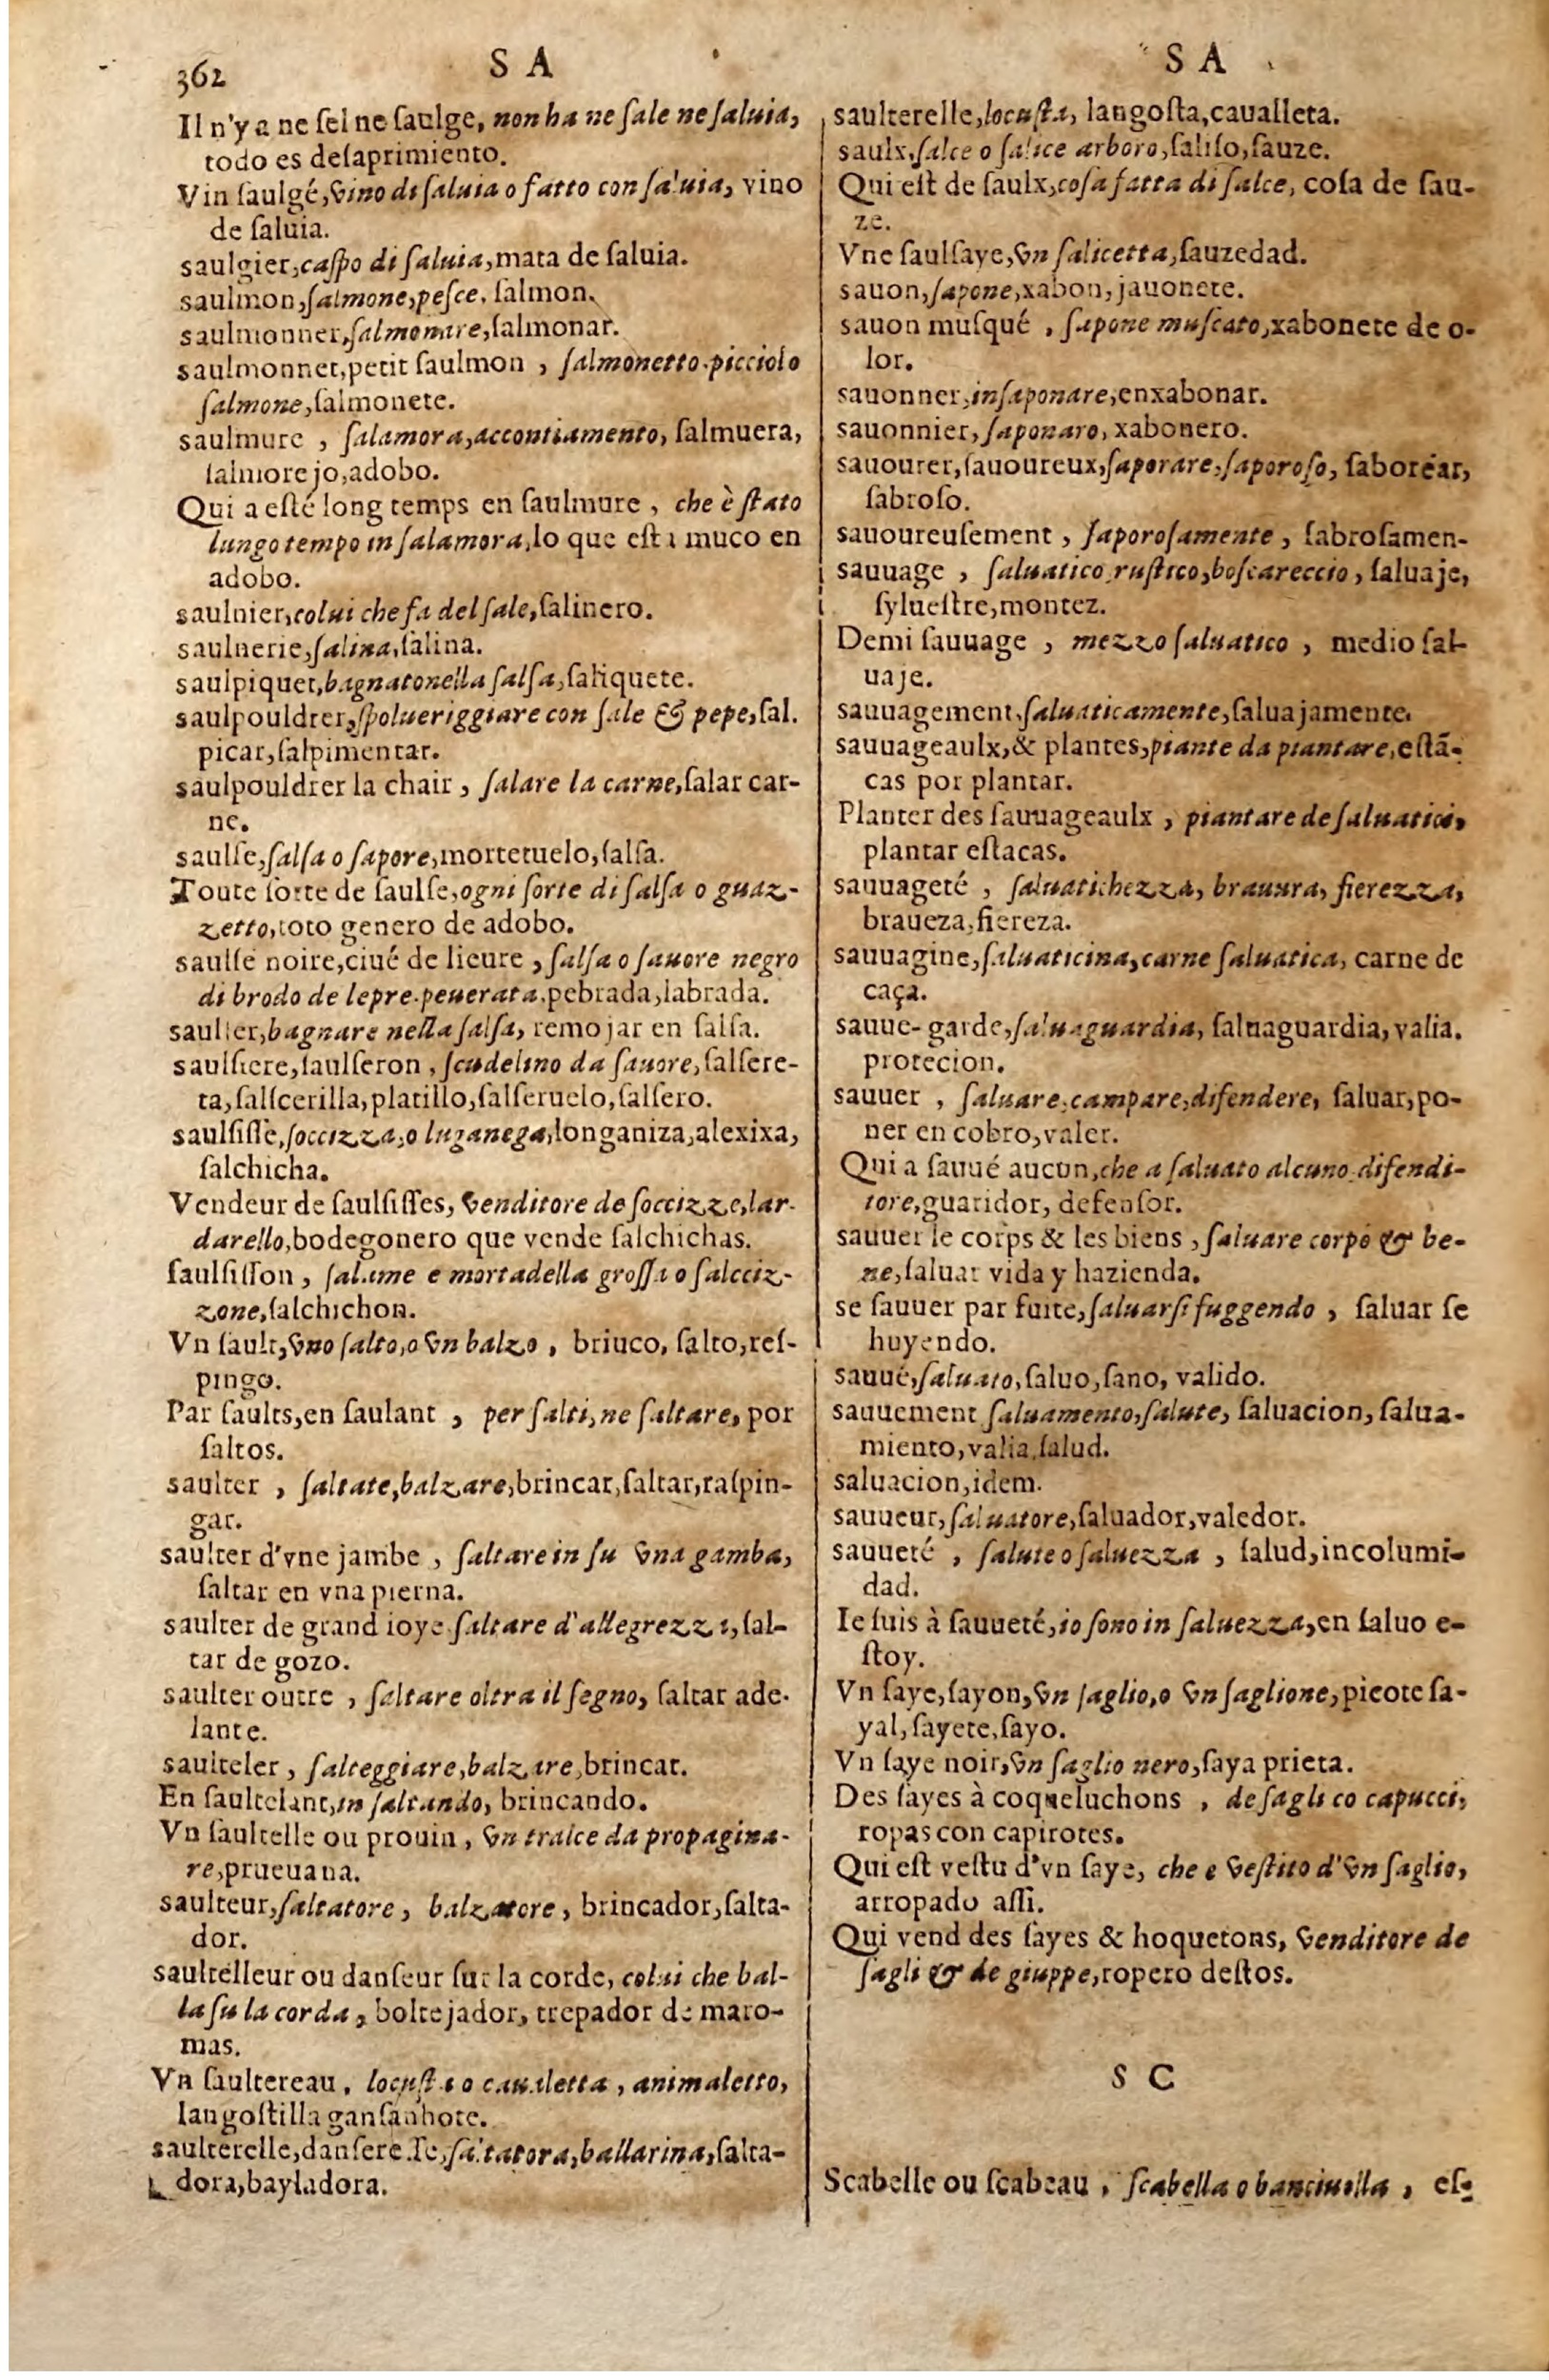 362
S A
Il n'y a ne ſel ne ſaulge, non ha ne ſale ne ſaluia,
todo es deſaprimiento.
Vin ſaulgé, vino di ſaluia o fatto con ſaluia, vino
de ſaluia.
saulgier, caſpo di ſaluia, mata de ſaluia.
saulmon, ſalmone, peſce, ſalmon.
saulmonner, ſalmonare, ſalmonar.
saulmonnet, petit ſaulmon , ſalmonetto. picciolo
ſalmone, ſalmonete.
saulmure , ſalamora, accontiamento, ſalmuera,
ſalmorejo, adobo.
Qui a eſté long temps en ſaulmure , che è ſtato
lungo tempo in ſalamora, lo que eſta muco en
adobo.
saulnier, colui che fa del ſale, ſalinero.
saulnerie, ſalina, ſalina.
saulpiquet, bagnatonella ſalſa, ſaliquete.
saulpouldrer, ſpolueriggiare con ſale & pepe, ſal.
picar, ſalpimentar.
saulpouldrer la chair , ſalare la carne, ſalar car-
ne.
saulſe, ſalſa o ſapore, mortetuelo, ſalſa.
Toute ſorte de ſaulſe, ogni ſorte di ſalſa o guaz-
zetto, toto genero de adobo.
saulſe noire, ciué de lieure , ſalſa o ſauore negro
di brodo de lepre. peuerata. pebrada, labrada.
saulſer, bagnare nella ſalſa, remojar en ſalſa.
saulſiere, ſaulſeron , ſcudelino da ſauore, ſalſere-
ta, ſalſcerilla, platillo, ſalſeruelo, ſalſero.
saulſiſſe, ſoccizza, o luganega, longaniza, alexixa,
ſalchicha.
Vendeur de ſaulſiſſes, venditore de ſoccizze, lar-
darello, bodegonero que vende ſalchichas.
ſaulſiſſon , ſalame e mortadella groſſa o ſalcciz-
zone, ſalchichon.
Vn ſault, vno ſalto, o vn balzo , briuco, ſalto, reſ-
pingo.
Par ſaults, en ſaulant , per ſalti, ne ſaltare, por
ſaltos.
saulter , ſaltate, balzare, brincar, ſaltar, raſpin-
gar.
saulter d'vne jambe , ſaltare in ſu vna gamba,
ſaltar en vna pierna.
saulter de grand ioye ſaltare d'allegrezza, ſal-
tar de gozo.
saulter outre , ſaltare oltra il ſegno, ſaltar ade-
lante.
saulteler , ſalteggiare, balzare, brincar.
En ſaultelant, in ſaltando, brincando.
Vn ſaultelle ou prouin , vn tralce da propagina-
re, prueuana.
saulteur, ſaltatore , balzatore , brincador, ſalta-
dor.
saultelleur ou danſeur ſur la corde, colui che bal-
la ſu la corda , boltejador, trepador de maro-
mas.
Vn ſaultereau , locuſta o caualetta , animaletto,
langoſtilla ganſanhote.
saulterelle, danſereſſe, ſaltatora, ballarina, ſalta-
dora, bayladora.
S A
saulterelle, locuſta, langoſta, caualleta.
saulx, ſalce o ſalice arboro, ſaliſo, ſauze.
Qui eſt de ſaulx, coſa fatta di ſalce, coſa de ſau-
ze.
Vne ſaulſaye, vn ſalicetta, ſauzedad.
sauon, ſapone, xabon, jauonete.
sauon muſqué , ſapone muſcato, xabonete de o-
lor.
sauonner, inſaponare, enxabonar.
sauonnier, ſaponaro, xabonero.
sauourer, ſauoureux, ſaporare, ſaporoſo, ſaborear,
ſabroſo.
sauoureuſement , ſaporoſamente , ſabroſamen-
sauuage , ſaluatico, ruſtico, boſcareccio, ſaluaje,
ſylueſtre, montez.
Demi ſauuage , mezzo ſaluatico , medio ſal-
uaje.
sauuagement, ſaluaticamente, ſaluajamente.
sauuageaulx, & plantes, piante da piantare, eſtã-
cas por plantar.
Planter des ſauuageaulx , piantare de ſaluatici,
plantar eſtacas.
sauuageté , ſaluatichezza, brauura, fierezza,
braueza, fiereza.
sauuagine, ſaluaticina, carne ſaluatica, carne de
caça.
sauue-garde, ſaluaguardia, ſaluaguardia, valia.
protecion.
sauuer , ſaluare, campare, difendere, ſaluar, po-
ner en cobro, valer.
Qui a ſauué aucun, che a ſaluato alcuno. difendi-
tore, guaridor, defenſor.
sauuer le corps & les biens , ſaluare corpo & be-
ne, ſaluar vida y hazienda.
se ſauuer par fuite, ſaluarſi fuggendo , ſaluar ſe
huyendo.
sauué, ſaluato, ſaluo, ſano, valido.
sauuement ſaluamento, ſalute, ſaluacion, ſalua-
miento, valia, ſalud.
saluacion, idem.
sauueur, ſaluatore, ſaluador, valedor.
sauueté , ſalute o ſaluezza , ſalud, incolumi-
dad.
Ie ſuis à ſauueté, io ſono in ſaluezza, en ſaluo e-
ſtoy.
Vn ſaye, ſayon, vn ſaglio, o vn ſaglione, picote ſa-
yal, ſayete, ſayo.
Vn ſaye noir, vn ſaglio nero, ſaya prieta.
Des ſayes à coqueluchons , de ſagli co capucci,
ropas con capirotes.
Qui eſt veſtu d'vn ſaye, che e veſtito d'vn ſaglio,
arropado aſſi.
Qui vend des ſayes & hoquetons, venditore de
ſagli & de giuppe, ropero deſtos.
S C
Scabelle ou ſcabeau , ſcabella o banciuella , eſ-